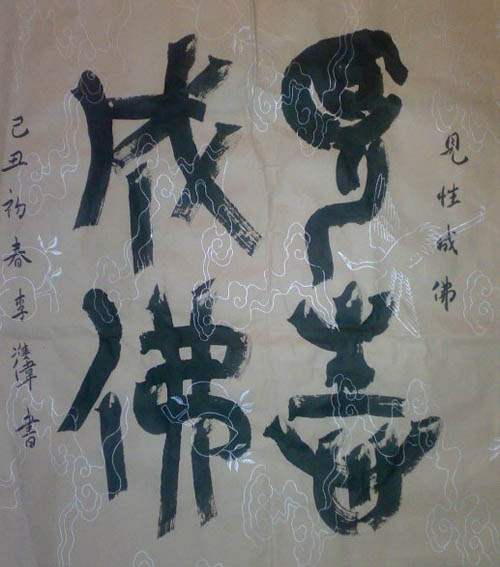 見性成佛
見性
成佛
己丑初春李淮偉書